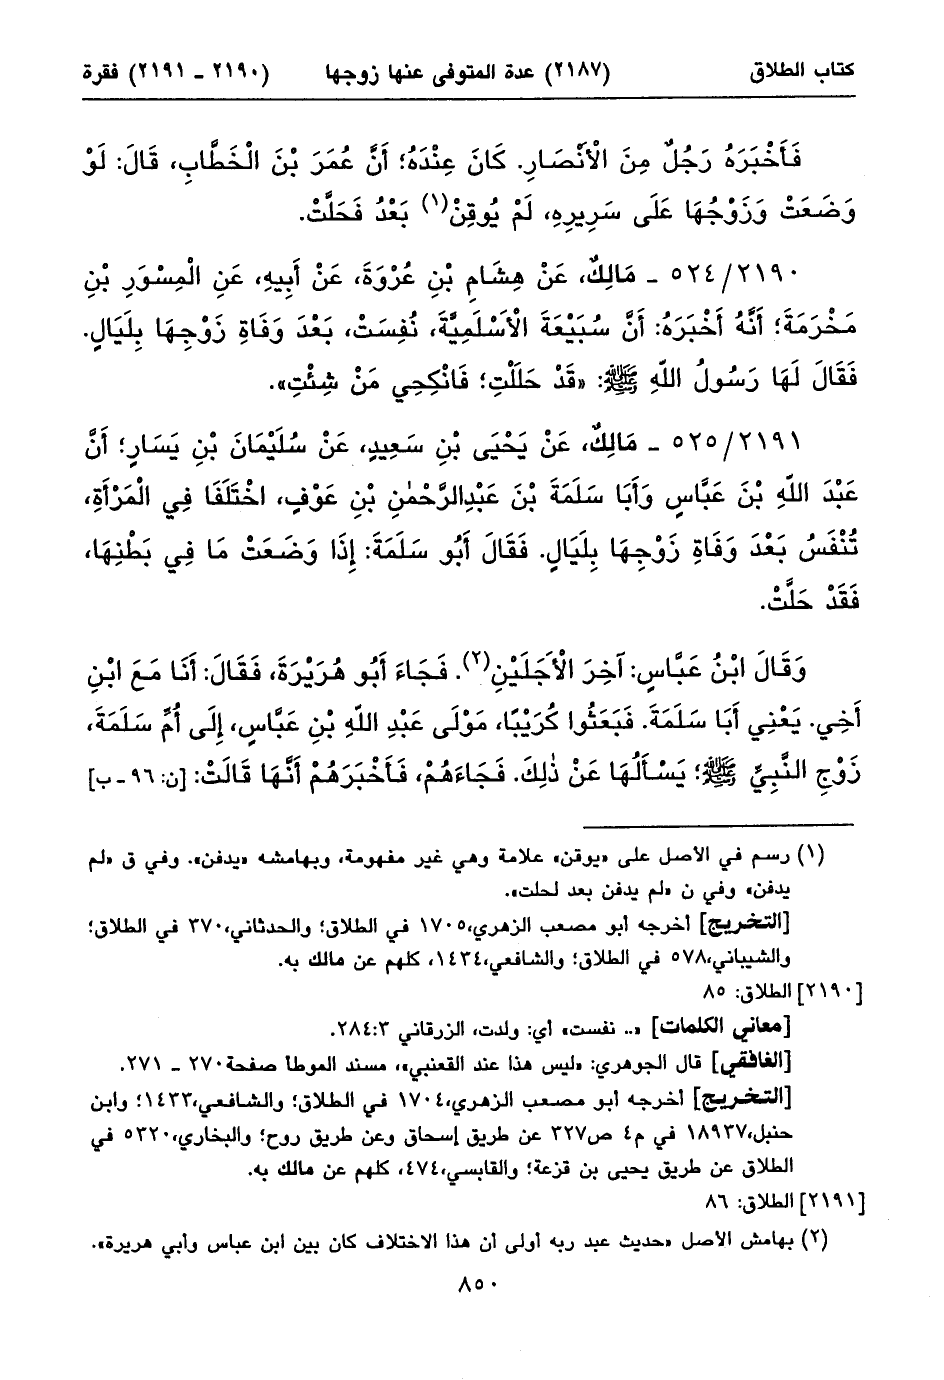 كتاب الطلاق (٢١٨٧) عدة المتوفى عنها زوجها (٢١٩٠ ـ ٢١٩١) فقرة
فَأَخْبَرَهُ رَجُلٌ مِنَ الْأَنْصَارِ. كَانَ عِنْدَهُ؛ أَنَّ عُمَرَ بْنَ الْخَطَّابِ، قَالَ: لَوْ
وَضَعَتْ وَزَوْجُهَا عَلَى سَرِيرِهِ، لَمْ يُوقِنْ(١) بَعْدُ فَحَلَّتْ.
٥٢٤/٢١٩٠ ـ مَالِكٌ، عَنْ هِشَامِ بْنِ عُرْوَةَ، عَنْ أَبِيهِ، عَنِ الْمِسْوَرِ بْنِ
مَخْرَمَةَ؛ أَنَّهُ أَخْبَرَهُ: أَنَّ سُبَيْعَةَ الْأَسْلَمِيَّةَ، نُفِسَتْ، بَعْدَ وَفَاةِ زَوْجِهَا بِلَيَالٍ.
فَقَالَ لَهَا رَسُولُ اللَّهِ ﷺ: «قَدْ حَلَلْتِ؛ فَانْكِحِي مَنْ شِئْتِ».
٥٢٥/٢١٩١ ـ مَالِكٌ، عَنْ يَحْيَى بْنِ سَعِيدٍ، عَنْ سُلَيْمَانَ بْنِ يَسَارٍ؛ أَنَّ
عَبْدَ اللَّهِ بْنَ عَبَّاسٍ وَأَبَا سَلَمَةَ بْنَ عَبْدِالرَّحْمٰنِ بْنِ عَوْفٍ، اخْتَلَفَا فِي الْمَرْأَةِ،
تُنْفَسُ بَعْدَ وَفَاةِ زَوْجِهَا بِلَيَالٍ. فَقَالَ أَبُو سَلَمَةَ: إِذَا وَضَعَتْ مَا فِي بَطْنِهَا،
فَقَدْ حَلَّتْ.
وَقَالَ ابْنُ عَبَّاسٍ: آخِرَ الْأَجَلَيْنِ(٢). فَجَاءَ أَبُو هُرَيْرَةَ، فَقَالَ: أَنَا مَعَ ابْنِ
أَخِي. يَعْنِي أَبَا سَلَمَةَ. فَبَعَثُوا كُرَيْبًا، مَوْلَى عَبْدِ اللَّهِ بْنِ عَبَّاسٍ، إِلَى أُمِّ سَلَمَةَ،
زَوْجِ النَّبِيِّ ﷺ؛ يَسْأَلُهَا عَنْ ذٰلِكَ. فَجَاءَهُمْ، فَأَخْبَرَهُمْ أَنَّهَا قَالَتْ: [ن: ٩٦ ـ ب]
(١) رسم في الأصل على «يوقن» علامة وهي غير مفهومة، وبهامشه «يدفن». وفي ق «لم
يدفن» وفي ن «لم يدفن بعد لحلت».
[التخريج] أخرجه أبو مصعب الزهري،١٧٠٥ في الطلاق؛ والحدثاني،٣٧٠ في الطلاق؛
والشيباني،٥٧٨ في الطلاق؛ والشافعي،١٤٣٤، كلهم عن مالك به.
[٢١٩٠] الطلاق: ٨٥
[معاني الكلمات] «.. نفست» أي: ولدت، الزرقاني ٢٨٤:٣.
[الغافقي] قال الجوهري: «ليس هذا عند القعنبي»، مسند الموطأ صفحة٢٧٠ ـ ٢٧١.
[التخريج] أخرجه أبو مصعب الزهري،١٧٠٤ في الطلاق؛ والشافعي،١٤٣٣؛ وابن
حنبل،١٨٩٣٧ في م٤ ص٣٢٧ عن طريق إسحاق وعن طريق روح؛ والبخاري،٥٣٢٠ في
الطلاق عن طريق يحيى بن قزعة؛ والقابسي،٤٧٤، كلهم عن مالك به.
[٢١٩١] الطلاق: ٨٦
(٢) بهامش الأصل «حديث عبد ربه أولى أن هذا الاختلاف كان بين ابن عباس وأبي هريرة».
٨٥٠